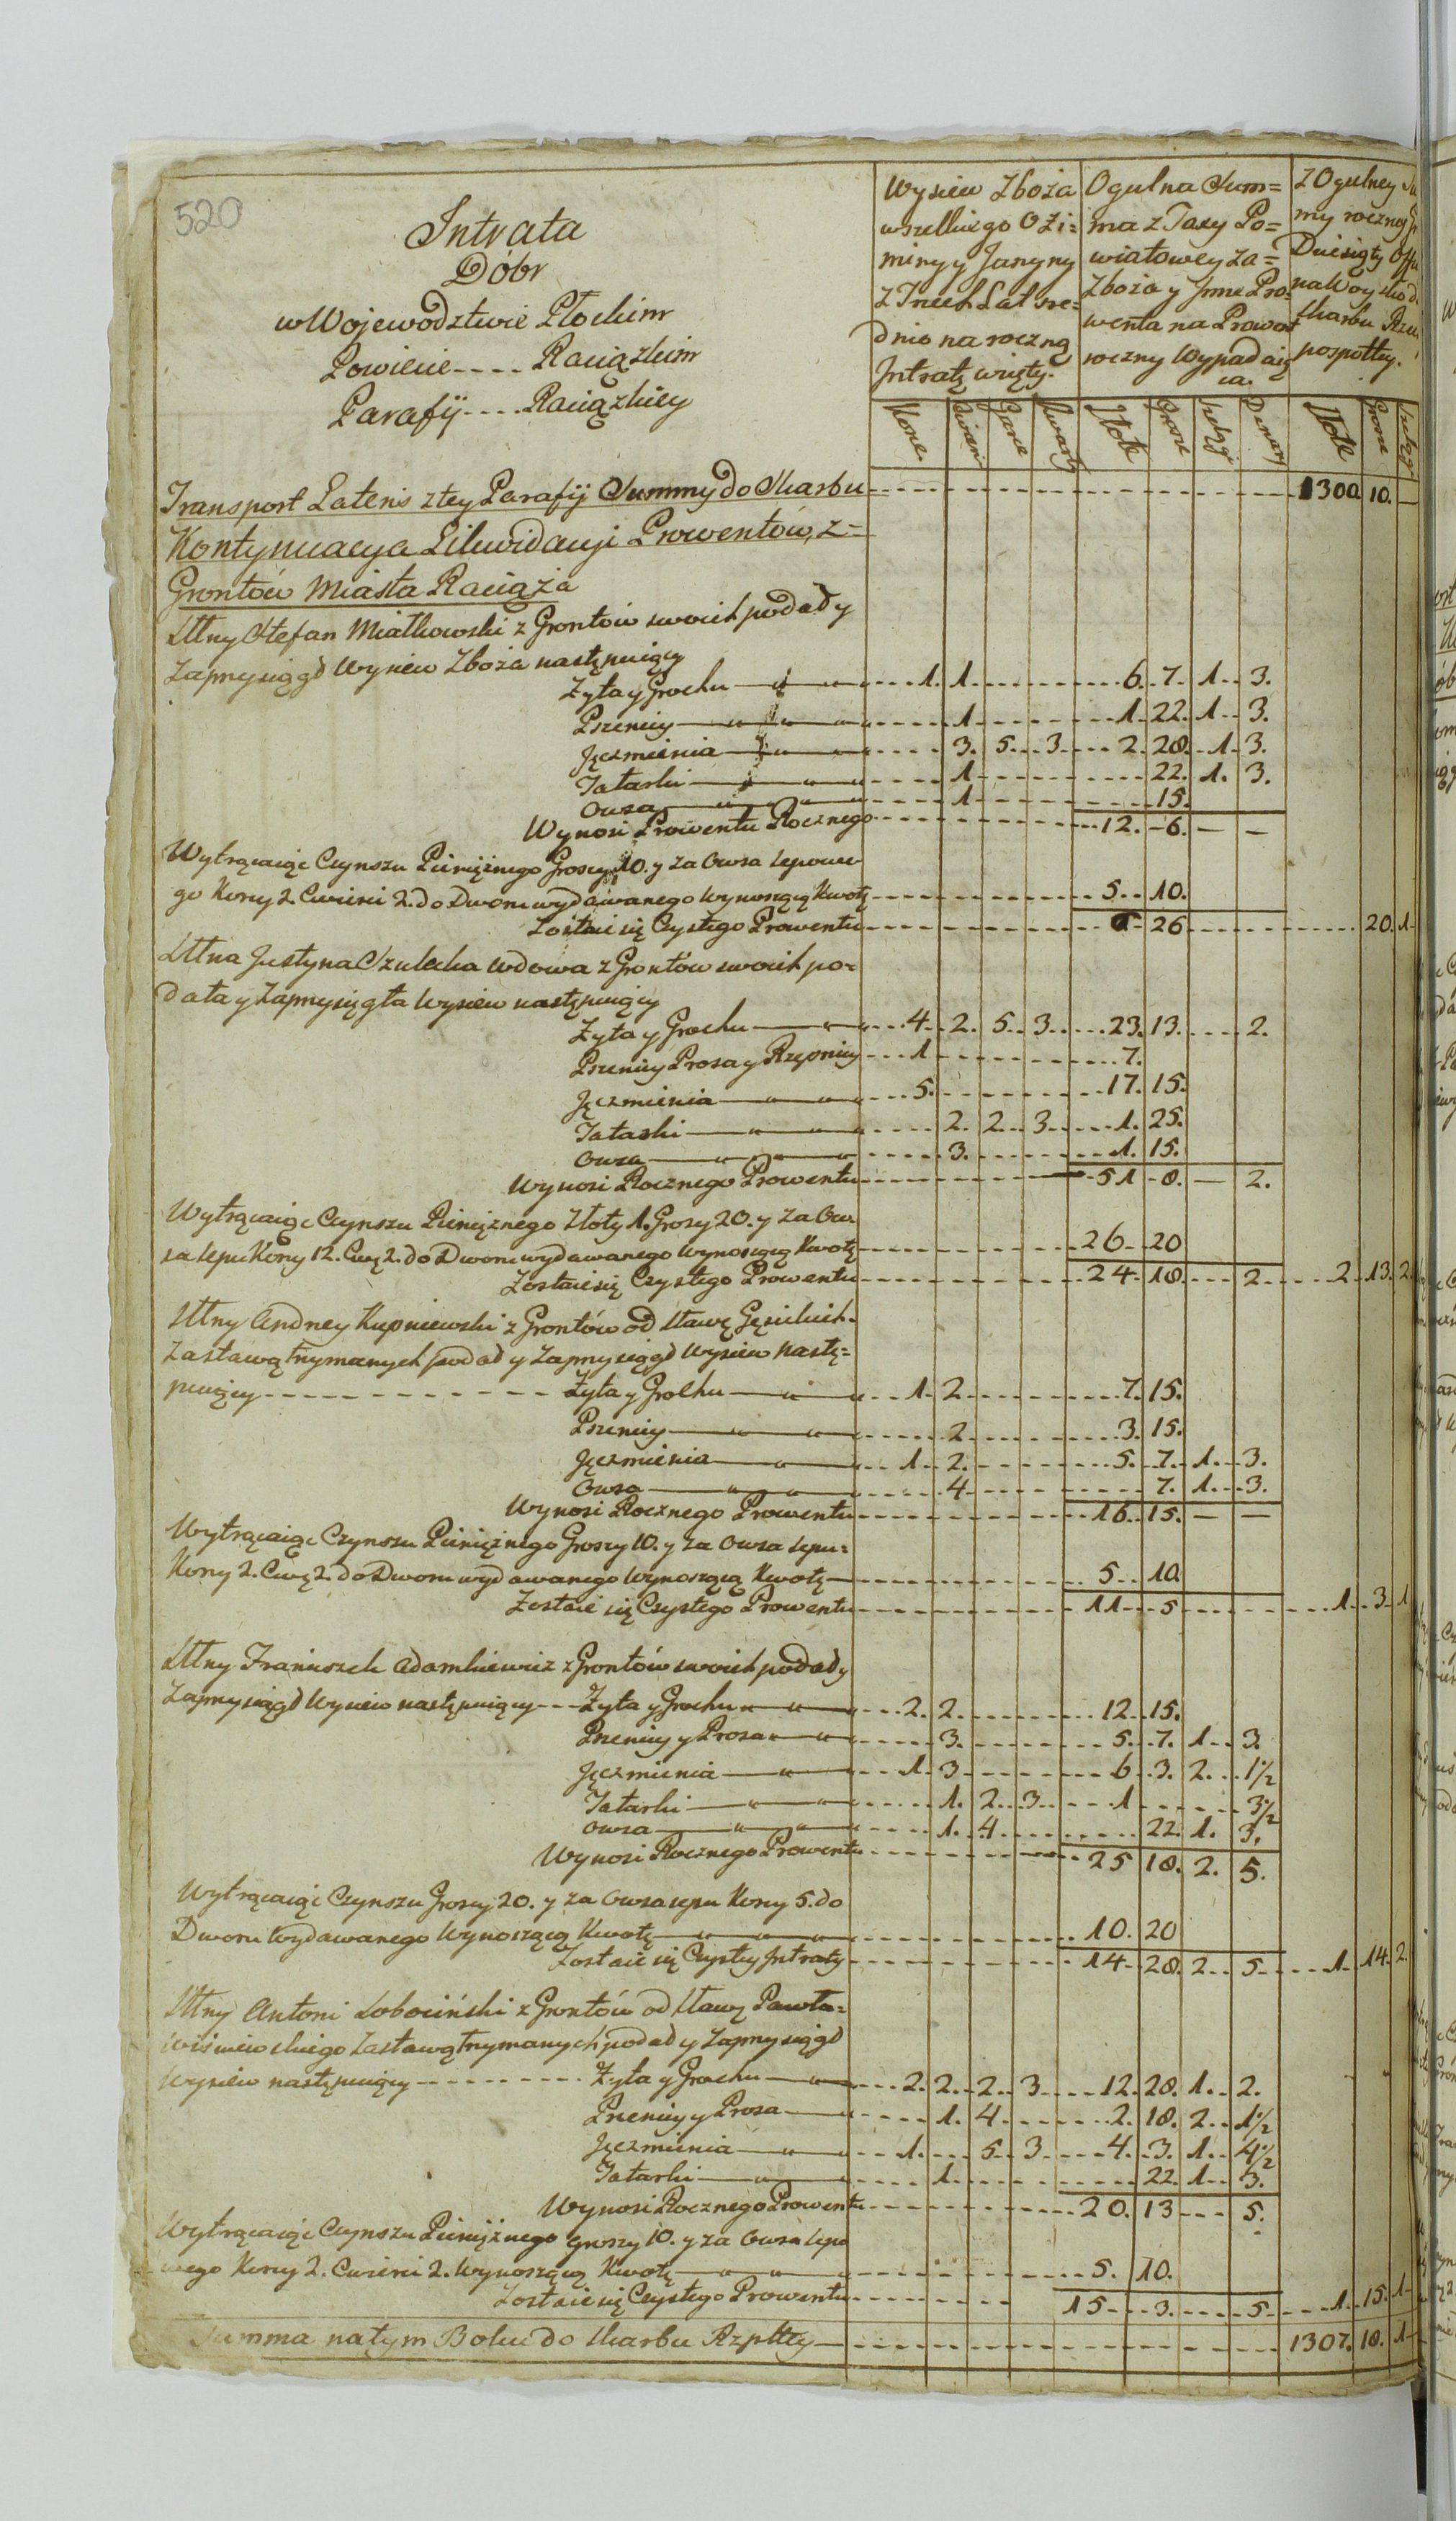 520
Intrata
Dóbr
w Wojewodztwie Płockim
Powiecie---- Raciązkim
Parafij---- Raciązkiey
Wysiew Zboża
wszelkiego Ozi=
miny y Jarzyny
z Trzech Lat sre-
dnio na roczną
Jntratę wzięty.
Ogulna Sum=
ma z Taxy Po=
wiatowey za=
Zboża y Jnne Pro=
wenta na Prowent
roczny Wypadaią
ca.
Z Ogulney
my roczney
Dziesięty
na Woysko
Skarbu
pospolitey.
Korce Cwierci Garce Kwarty Złote Grosze Szelągi Denary Złote Grosze Szelągi
Transport Lateris z tey Parafij Summy do Skarbu 1300. 10. —
Kontynuacya Likwidacyi Prowentów, z=
Grontów Miasta Raciąża
Sttny Stefan Miatkowski z Grontów swoich podał y
Zaprzysiągł Wysiew Zboża następuiący
Zyta y Grochu 1. 1. 6. 7. 1. 3.
Pszenicy 1. 1. 22. 1. 3.
Jęczmienia 3. 5. 3. 2. 28. 1. 3.
Tatarki 1. 22. 1. 3.
Owsa 1. 15.
Wynosi Prowentu Rocznego 12. 6. — —
Wytrącaiąc Czynszu Pieniężnego Groszy 10. y za Owsa Sepowe
go Korcy 2. Cwierci 2. do Dworu wydawanego Wynoszącą Kwotę 5. 10.
Zostaie się Czystego Prowentu 6 26 20. 1
Sttna Justyna Szulecka Wdowa z Grontów swoich po=
dała y Zaprzysięgła Wysiew następuiący
Zyta y Grochu 4. 2. 5. 3. 23. 13. 2.
Pszenicy Prosa y Rzepnicy 1 7.
Jęczmienia 5. 17. 15.
Tatarki 2. 2. 3. 1. 25.
Owsa 3. 1. 15.
Wynosi Rocznego Prowentu 51 8. — 2.
Wytrącaiąc Czynszu Pieniężnego Złoty 1. Groszy 20. y za Ow
sa sepu Korcy 12. Cwę 2. do Dworu wydawanego Wynoszącą Kwotę 26 20
Zostaie się Czystego Prowentu 24 18. 2 2 13. 2
Sttny Andrzey Kupniewski z Grontów od Sławę. Gęsickich
Zastawą trzymanych podał y Zaprzysiągł Wysiew Nastę=
puiący Zyta y Grochu 1. 2 7. 15.
Pszenicy 2 3. 15.
Jęczmienia 1 2. 5. 7. 1. 3.
Owsa 4 7. 1. 3.
Wynosi Rocznego Prowentu 16. 15. — —
Wytrącaiąc Czynszu Pieniężnego Groszy 10. y za Owsa Sepu=
Korcy 2. Cwę 2. do Dworu wydawanego Wynoszącą Kwotę 5. 10.
Zostaie się Czystego Prowentu 11 5 1. 3. 1
Sttny Franciszek Adamkiewicz z Grontów swoich podał y
Zaprzysiągł Wysiew następuiący --- Zyta y Grochu 2. 2. 12. 15.
Pszenicy y Prosa 3. 5. 7. 1. 3.
Jęczmienia 1. 3 6. 3. 2. 1½
Tatarki 1. 2. 3 1 3½
Owsa 1. 4. 22. 1. 3.
Wynosi Rocznego Prowentu 25 18. 2. 5.
Wytrącaiąc Czynszu Groszy 20. y za Owsa sepu Korcy 5. do
Dworu Wydawanego Wynoszącą Kwotę 10. 20
Zostaie się Czystey Jntraty 14 28. 2. 5 1. 14. 2
Sttny Antoni Łobociński z Grontów od Sławę Pawła=
Wisniewskiego Zastawą trzymanych podał y Zaprzysiągł
Wysiew następuiący Zyta y Grochu 2. 2. 2. 3 12. 28. 1. 2.
Pszenicy y Prosa 1. 4. 2. 18. 2. 1½
Jęczmienia 1. 5. 3 4. 3. 1. 4½
Tatarki 1. 22. 1. 3.
Wynosi Rocznego Prowentu 20. 13 5.
Wytrącaiąc Czynszu Pieniężnego groszy 10. y za Owsa sepo
wego Korcy 2. Cwierci 2. Wynoszącą Kwotę 5. 10.
Zostaie się Czystego Prowentu 15 3. 5 1. 15. 1
Summa na tym Boku do Skarbu Rzpltey 1307. 18. 1